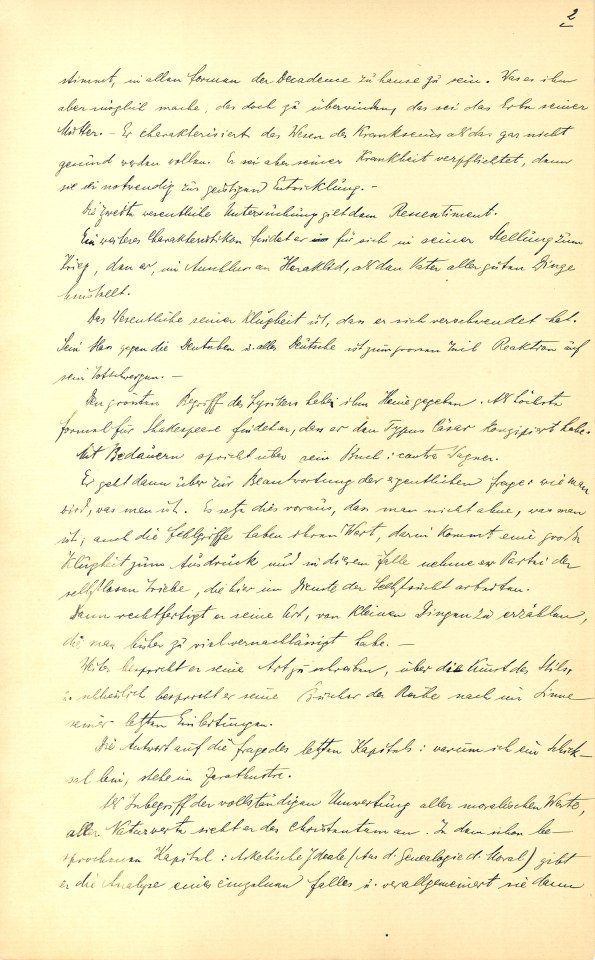 2
stimmt, in allen Formen der Decadence zu hause zu sein. Was es ihm
aber möglich mache, das doch zu überwinden, das sei das Erbe seiner
Mutter. – Er charakterisiert das Wesen des Krankseins als das gar nicht
gesund werden wollen. Er sei aber seiner Krankheit verpflichtet, denn
sie sei notwendig zur geistigen Entwicklung. –
Die zweite wesentliche Untersuchung gilt dem Ressentiment.
Ein weiteres Charakteristikon findet er für sich in seiner Stellung zum
Krieg, den er, im Anschluss an Heraklid, als den Vater aller guten Dinge
hinstellt.
Das Wesentliche seiner Klugheit ist, dass er sich verschwendet hat.
Sein Hass gegen die Deutschen u. alles Deutsche ist zum grossen Teil Reaktion auf
sein Totschweigen. –
Den grössten Begriff des Lyrikers habe ihm Heine gegeben. Als höchste
Formel für Shakespeare findet er, dass er den Typus Cäsar konzipiert habe.
Mit Bedauern spricht über sein Buch: contra Wagner.
Er geht dann über zur Beantwortung der eigentlichen Frage: wie man
wird, was man ist. Es setze dies voraus, dass man nicht ahne, was man
ist; auch die Fehlgriffe haben ihren Wert, darin kommt eine große
Klugheit zum Ausdruck und in diesem Falle nehme er Partei der
selbstlosen Triebe, die hier im Dienste der Selbstsucht arbeiten.
Dann rechtfertigt er seine Art, von kleinen Dingen zu erzählen,
die man bisher zu viel vernachlässigt habe. –
Weiter bespricht er seine Art zu schreiben, über die Kunst des Stils,
u. schliesslich bespricht er seine Bücher der Reihe nach im Sinne
seiner letzten Einleitungen.
Die Antwort auf die Frage des letzten Kapitels: warum ich ein Schick-
sal bin, stehe im Zarathustra.
Als Inbegriff der vollständigen Umwertung aller moralischen Werte,
aller Naturwerte sieht er das Christentum an. In dem schon be-
sprochenen Kapitel: Asketische Ideale (Aus d. Genealogie d. Moral) gibt
er die Analyse eines einzelnen Falles u. verallgemeinert sie dann